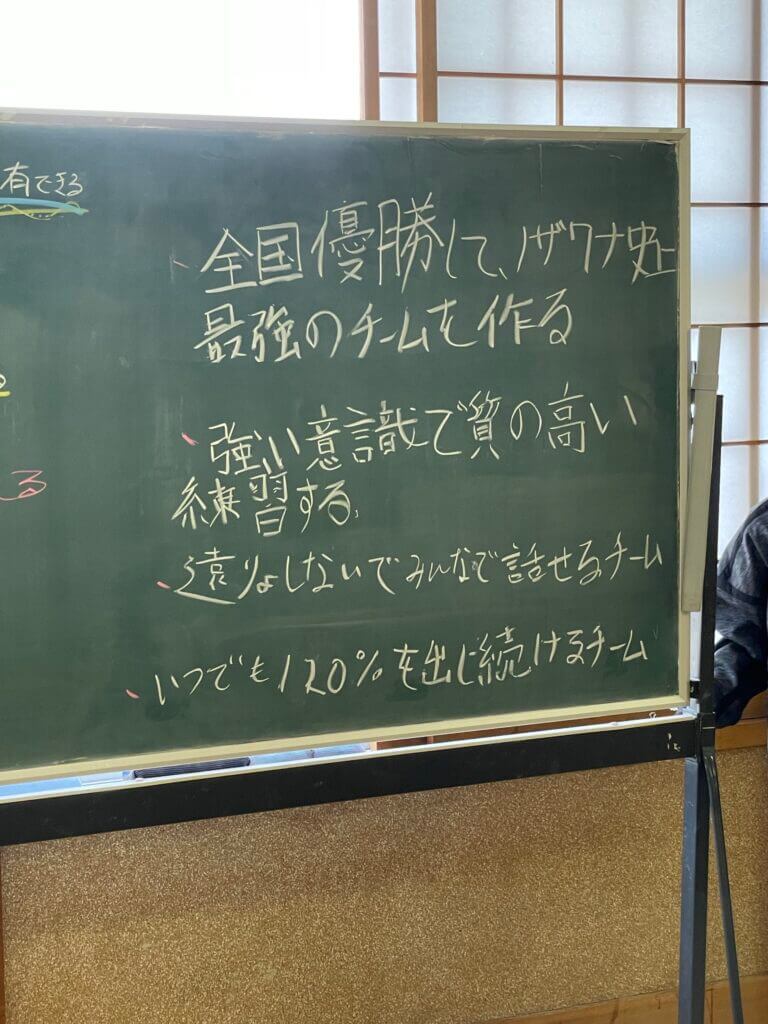 有できる
全国優勝して、ノザワナ史上
最強のチームを作る
強い意識で質の高い
練習する。
遠りょしないでみんなで話せるチーム
いつでも120%を出し続けるチーム
る